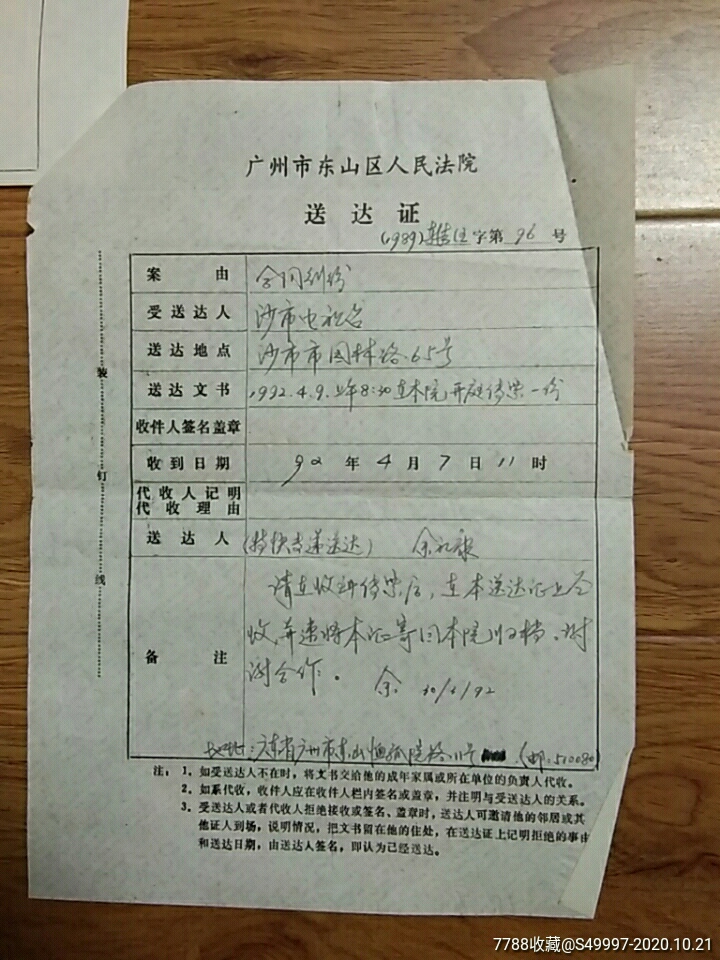 广州市东山区人民法院
送达证
(1989) 字第 96 号
案由 合同纠纷
受送达人 沙市电视台
送达地点 沙市市园林路65号
送达文书 1992.4.9.上午8:30在本院开庭传票一份
收件人签名盖章
收到日期 92 年 4 月 7 日 11 时
代收人记明
代收理由
送达人 (特快专递送达) 余
备注 请在收到传票后,在本送达证上签
收,并速将本证寄回本院归档。谢
谢合作。 余
地址:广东省广州市东山恤孤院路11号 (邮:510080)
装
钉
线
注:1、如受送达人不在时,将文书交给他的成年家属或所在单位的负责人代收。
2、如系代收,收件人应在收件人栏内签名或盖章,并注明与受送达人的关系。
3、受送达人或者代收人拒绝接收或签名、盖章时,送达人可邀请他的邻居或其
他证人到场,说明情况,把文书留在他的住处,在送达证上记明拒绝的事由
和送达日期,由送达人签名,即认为已经送达。
7788收藏@S49997-2020.10.21